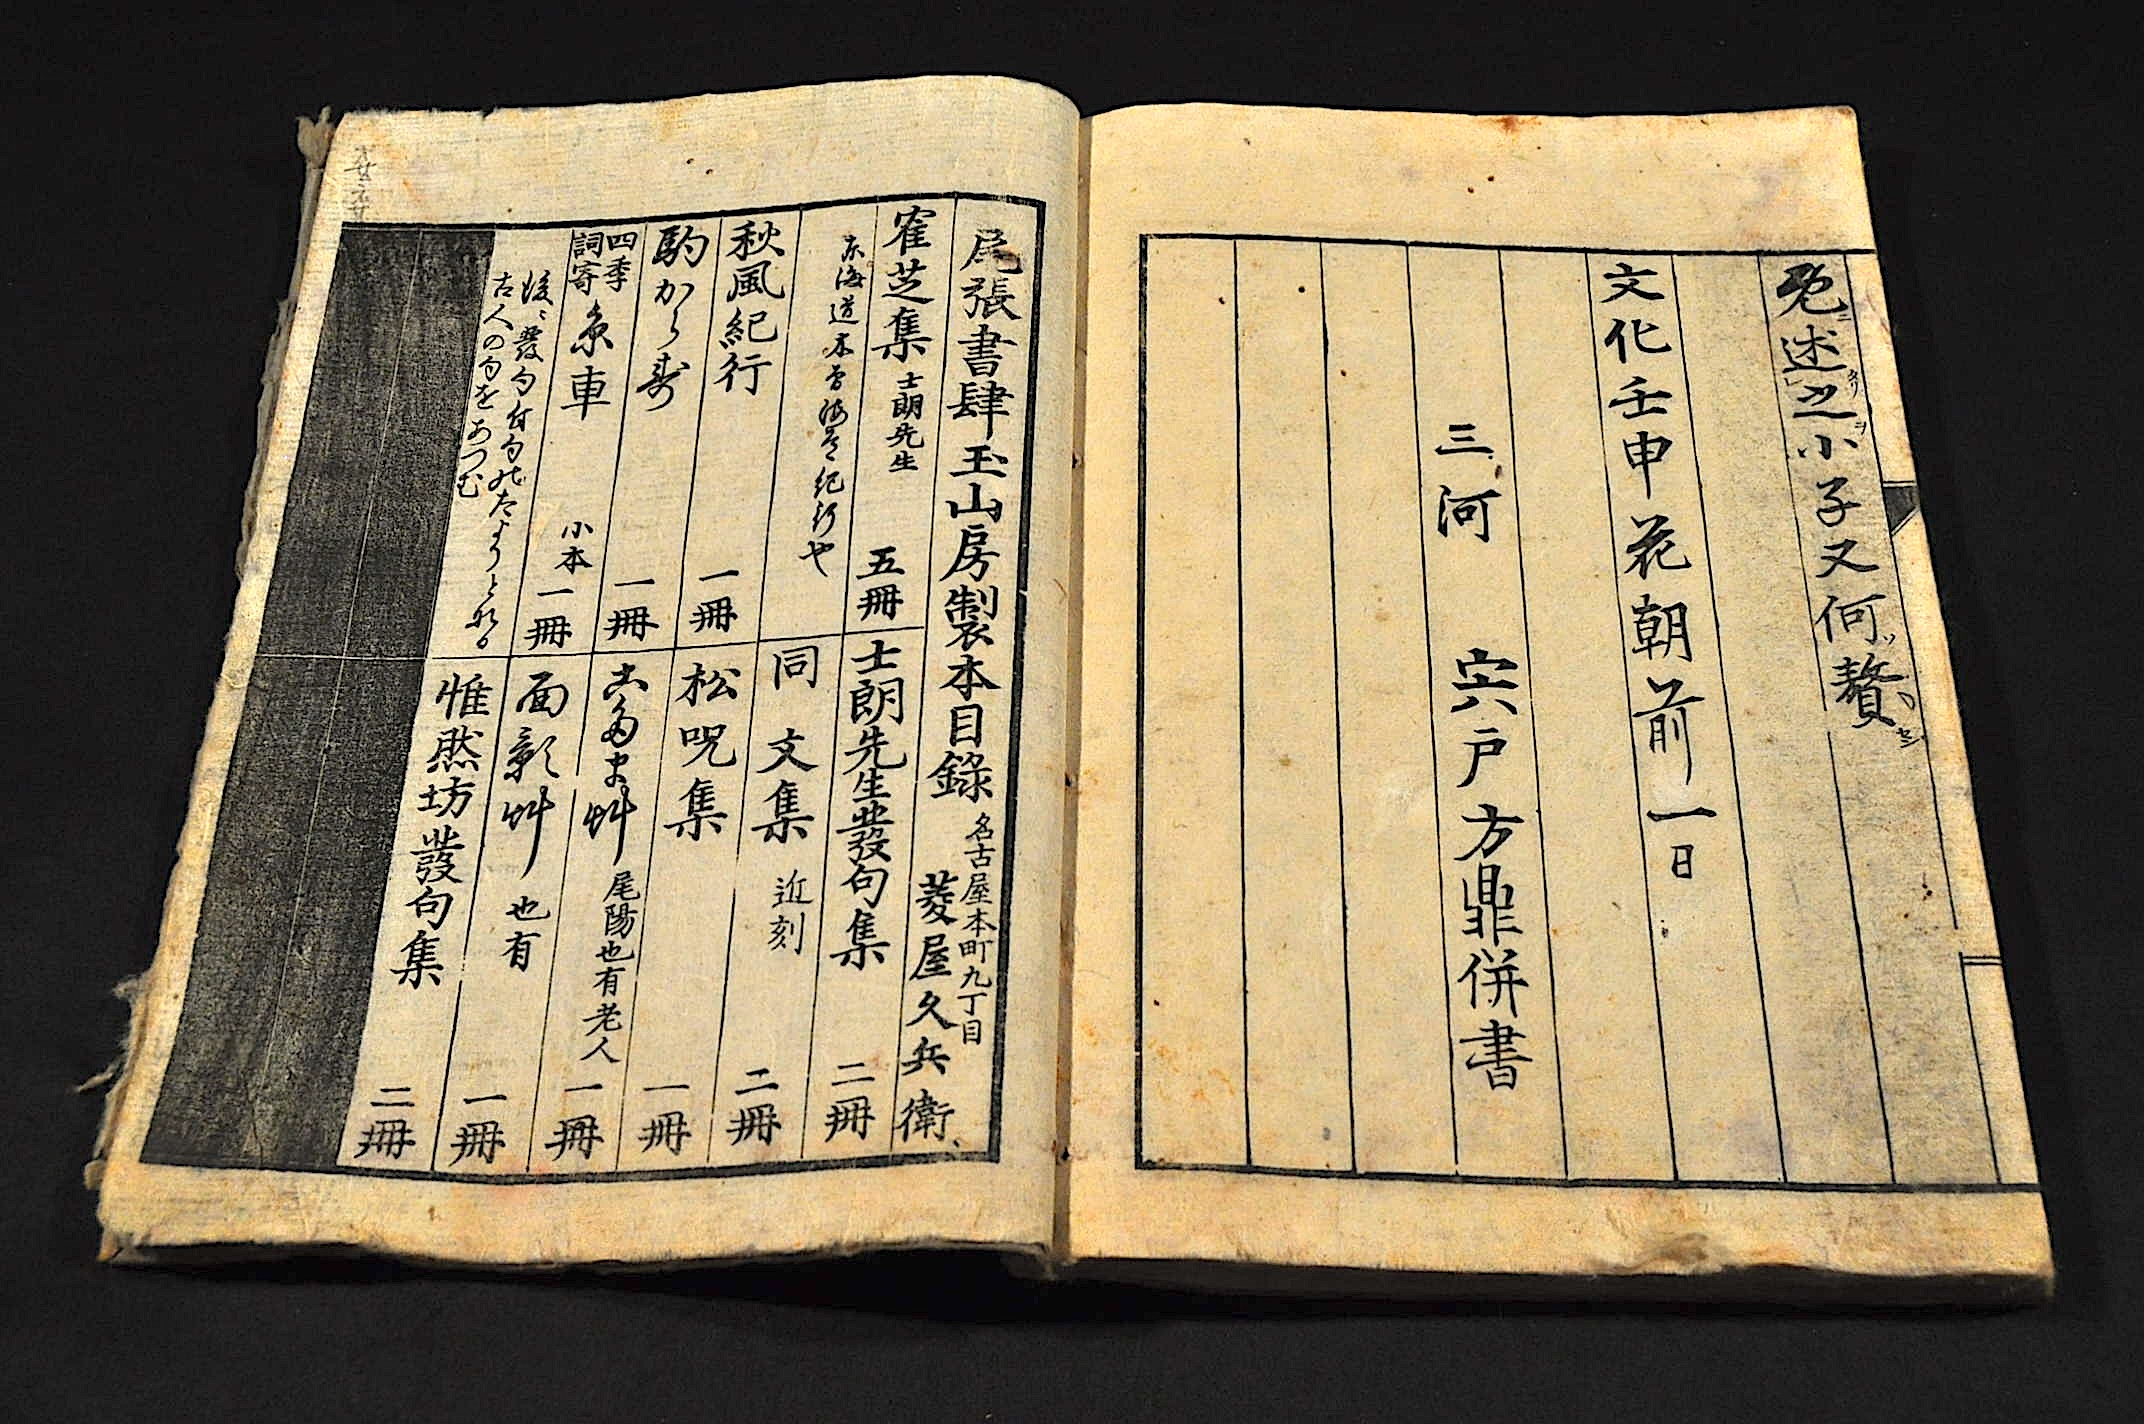 既述之小子又何贅
文化壬申花朝前一日
三河 宍戸方鼎併書
尾張書肆玉山房製本目錄 名古屋本町九丁目 菱屋久兵衛
寉芝集 士朗先生 五冊
東海道木曽海道紀行也
秋風紀行 一冊
駒からす 一冊
四季詞寄 糸車 小本 一冊
發句付句のたよりとなる
古人の句をあつむ
士朗先生發句集 二冊
同文集 近刻 二冊
松呪集 一冊
艸 尾陽也有老人 一冊
面影艸 也有 一冊
惟然坊發句集 二冊